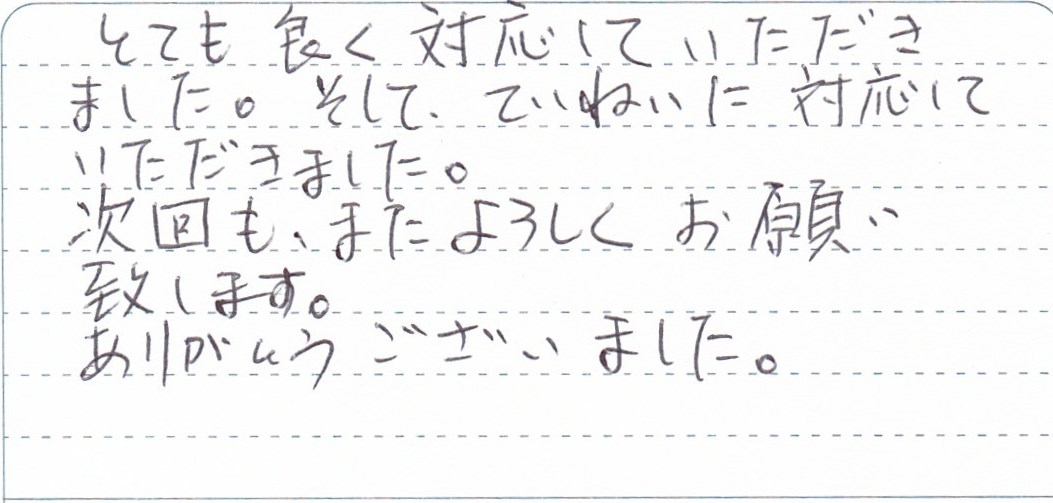 とても良く対応していただき
ました。そして、ていねいに対応して
いただきました。
次回も、またよろしくお願い
致します。
ありがとうございました。